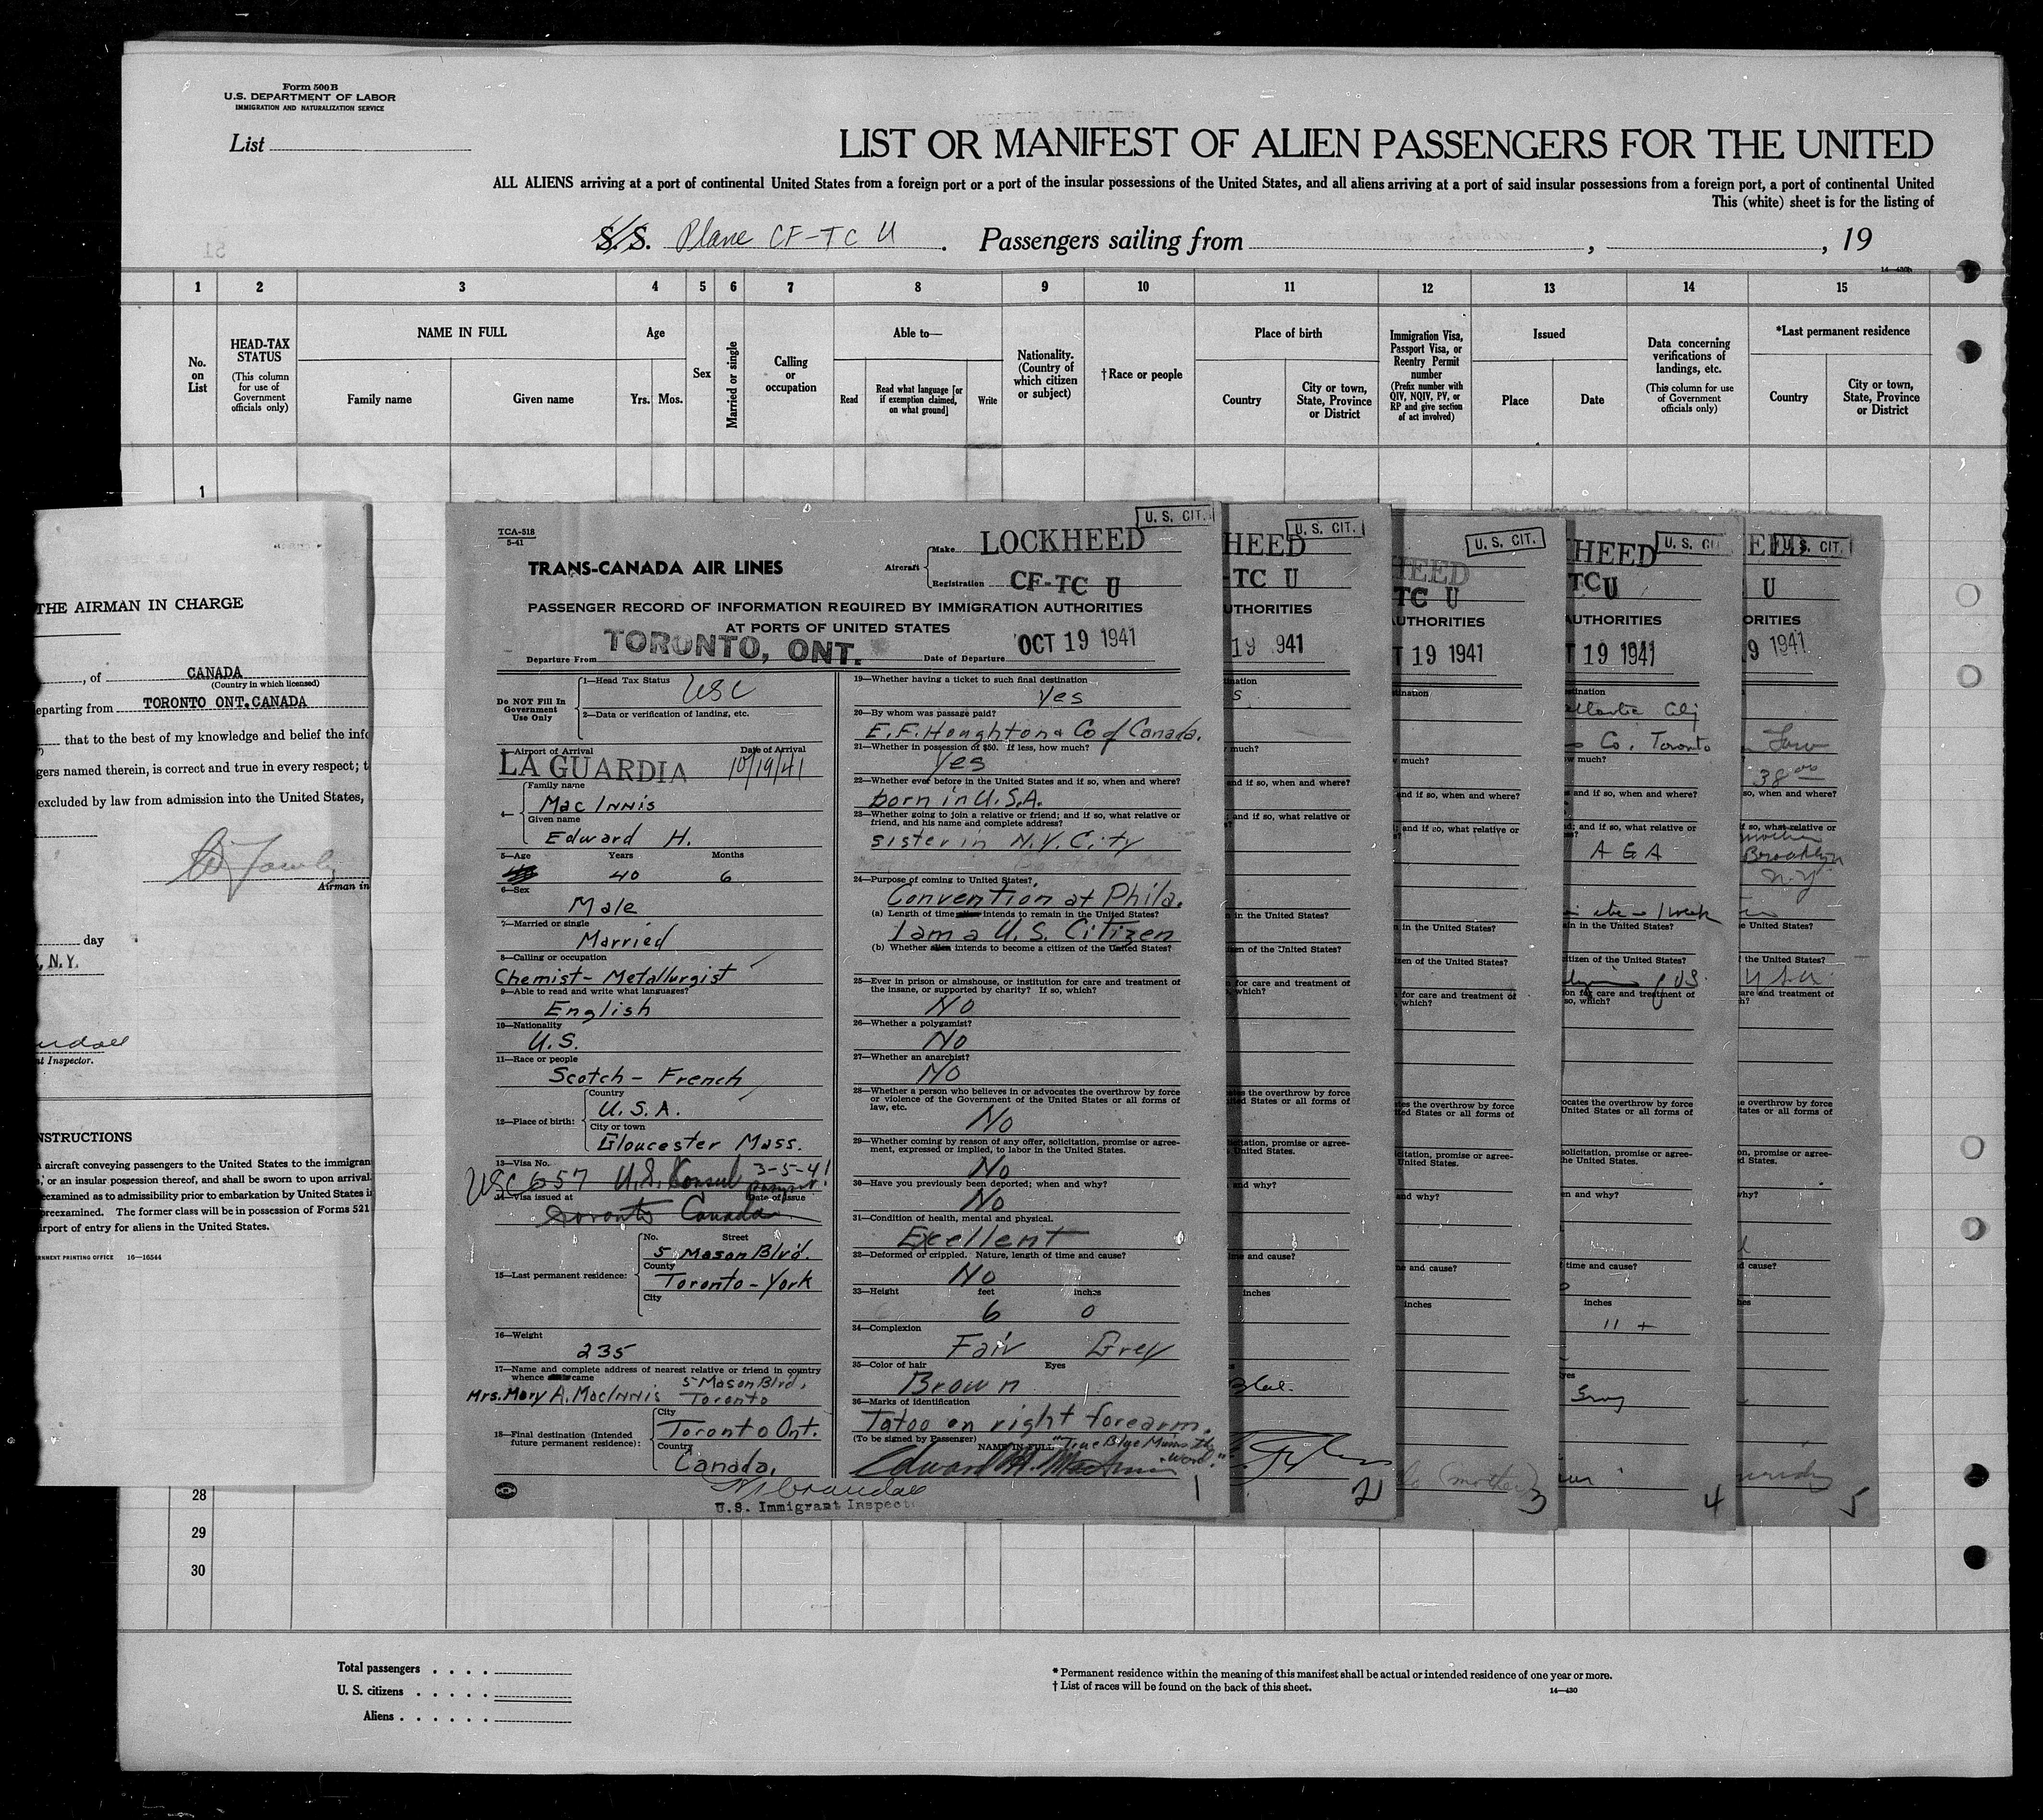 Form 500B
U.S. DEPARTMENT OF LABOR
IMMIGRATION AND NATURALIZATION SERVICE
List
LIST OR MANIFEST OF ALIEN PASSENGERS FOR THE UNITED
ALL ALIENS arriving at a port of continental United States from a foreign port or a port of the insular possessions of the United States, and all aliens arriving at a port of said insular possessions from a foreign port, a port of continental United
This (white) sheet is for the listing of
S.S. Plane CF-TC U . Passengers sailing from , , 19
14—430b
1 2 3 4 5 6 7 8 9 10 11 12 13 14 15
No. on List
HEAD-TAX STATUS
(This column for use of Government officials only)
NAME IN FULL
Family name
Given name
Age
Yrs. Mos.
Sex
Married or single
Calling or occupation
Able to—
Read
Read what language [or if exemption claimed, on what ground]
Write
Nationality. (Country of which citizen or subject)
†Race or people
Place of birth
Country
City or town, State, Province or District
Immigration Visa, Passport Visa, or Reentry Permit number
(Prefix number with QIV, NQIV, PV, or RP and give section of act involved)
Issued
Place
Date
Data concerning verifications of landings, etc.
(This column for use of Government officials only)
*Last permanent residence
Country
City or town, State, Province or District
1
THE AIRMAN IN CHARGE
, of CANADA
(Country in which licensed)
eparting from TORONTO ONT.CANADA
that to the best of my knowledge and belief the info
gers named therein, is correct and true in every respect; t
excluded by law from admission into the United States,
Airman in
day
, N.Y.
nt Inspector.
NSTRUCTIONS
aircraft conveying passengers to the United States to the immigran
, or an insular possession thereof, and shall be sworn to upon arrival.
examined as to admissibility prior to embarkation by United States i
preexamined. The former class will be in possession of Forms 521
irport of entry for aliens in the United States.
RNMENT PRINTING OFFICE 16—16544
TCA-518
5-41
U. S. CIT.
TRANS-CANADA AIR LINES
Aircraft
Make LOCKHEED
Registration CF-TC U
PASSENGER RECORD OF INFORMATION REQUIRED BY IMMIGRATION AUTHORITIES
AT PORTS OF UNITED STATES
Departure From TORONTO, ONT. Date of Departure OCT 19 1941
Do NOT Fill In Government Use Only
1—Head Tax Status USC
2—Data or verification of landing, etc.
3—Airport of Arrival Date of Arrival
LA GUARDIA 10/19/41
4—
Family name
Mac Innis
Given name
Edward H.
5—Age Years Months
40 6
6—Sex
Male
7—Married or single
Married
8—Calling or occupation
Chemist - Metallurgist
9—Able to read and write what languages?
English
10—Nationality
U.S.
11—Race or people
Scotch - French
12—Place of birth:
Country
U.S.A.
City or town
Gloucester Mass.
13—Visa No.
USC 657 U.S. Consul 3-5-41
14—Visa issued at Date of Issue
Toronto Canada
15—Last permanent residence:
No. Street
5 Mason Blvd.
County
Toronto - York
City
16—Weight
235
17—Name and complete address of nearest relative or friend in country
whence came 5 Mason Blvd,
Mrs. Mary A. MacInnis Toronto
18—Final destination (Intended future permanent residence):
City
Toronto Ont.
Country
Canada,
19—Whether having a ticket to such final destination
Yes
20—By whom was passage paid?
E.F. Houghton & Co of Canada.
21—Whether in possession of $50. If less, how much?
Yes
22—Whether ever before in the United States and if so, when and where?
born in U.S.A.
23—Whether going to join a relative or friend; and if so, what relative or
friend, and his name and complete address?
sister in N.Y. City
24—Purpose of coming to United States?
Convention at Phila.
(a) Length of time intends to remain in the United States?
I am a U.S. Citizen
(b) Whether alien intends to become a citizen of the United States?
25—Ever in prison or almshouse, or institution for care and treatment of
the insane, or supported by charity? If so, which?
No
26—Whether a polygamist?
No
27—Whether an anarchist?
No
28—Whether a person who believes in or advocates the overthrow by force
or violence of the Government of the United States or all forms of
law, etc.
No
29—Whether coming by reason of any offer, solicitation, promise or agree-
ment, expressed or implied, to labor in the United States.
No
30—Have you previously been deported; when and why?
No
31—Condition of health, mental and physical.
Excellent
32—Deformed or crippled. Nature, length of time and cause?
No
33—Height feet inches
6 0
34—Complexion
Fair Grey
35—Color of hair Eyes
Brown
36—Marks of identification
Tatoo on right forearm.
(To be signed by Passenger) NAME IN FULL "True Blue Mums the Word."
Edward H. MacInnis
U.S. Immigrant Inspect
1
U. S. CIT.
HEED
-TC U
UTHORITIES
19 1941
2
U. S. CIT.
HEED
TC U
UTHORITIES
T 19 1941
(mother)
3
U. S. CI
HEED
TC U
AUTHORITIES
T 19 1941
Atlantic City
Co. Toronto
A G A
1 week
inches
11 +
4
U. S. CIT.
U
ORITIES
9 1941
38 00
mother
Brooklyn
N.Y.
5
28
29
30
Total passengers . . . .
U. S. citizens . . . . .
Aliens . . . . . .
* Permanent residence within the meaning of this manifest shall be actual or intended residence of one year or more.
† List of races will be found on the back of this sheet.
14—430